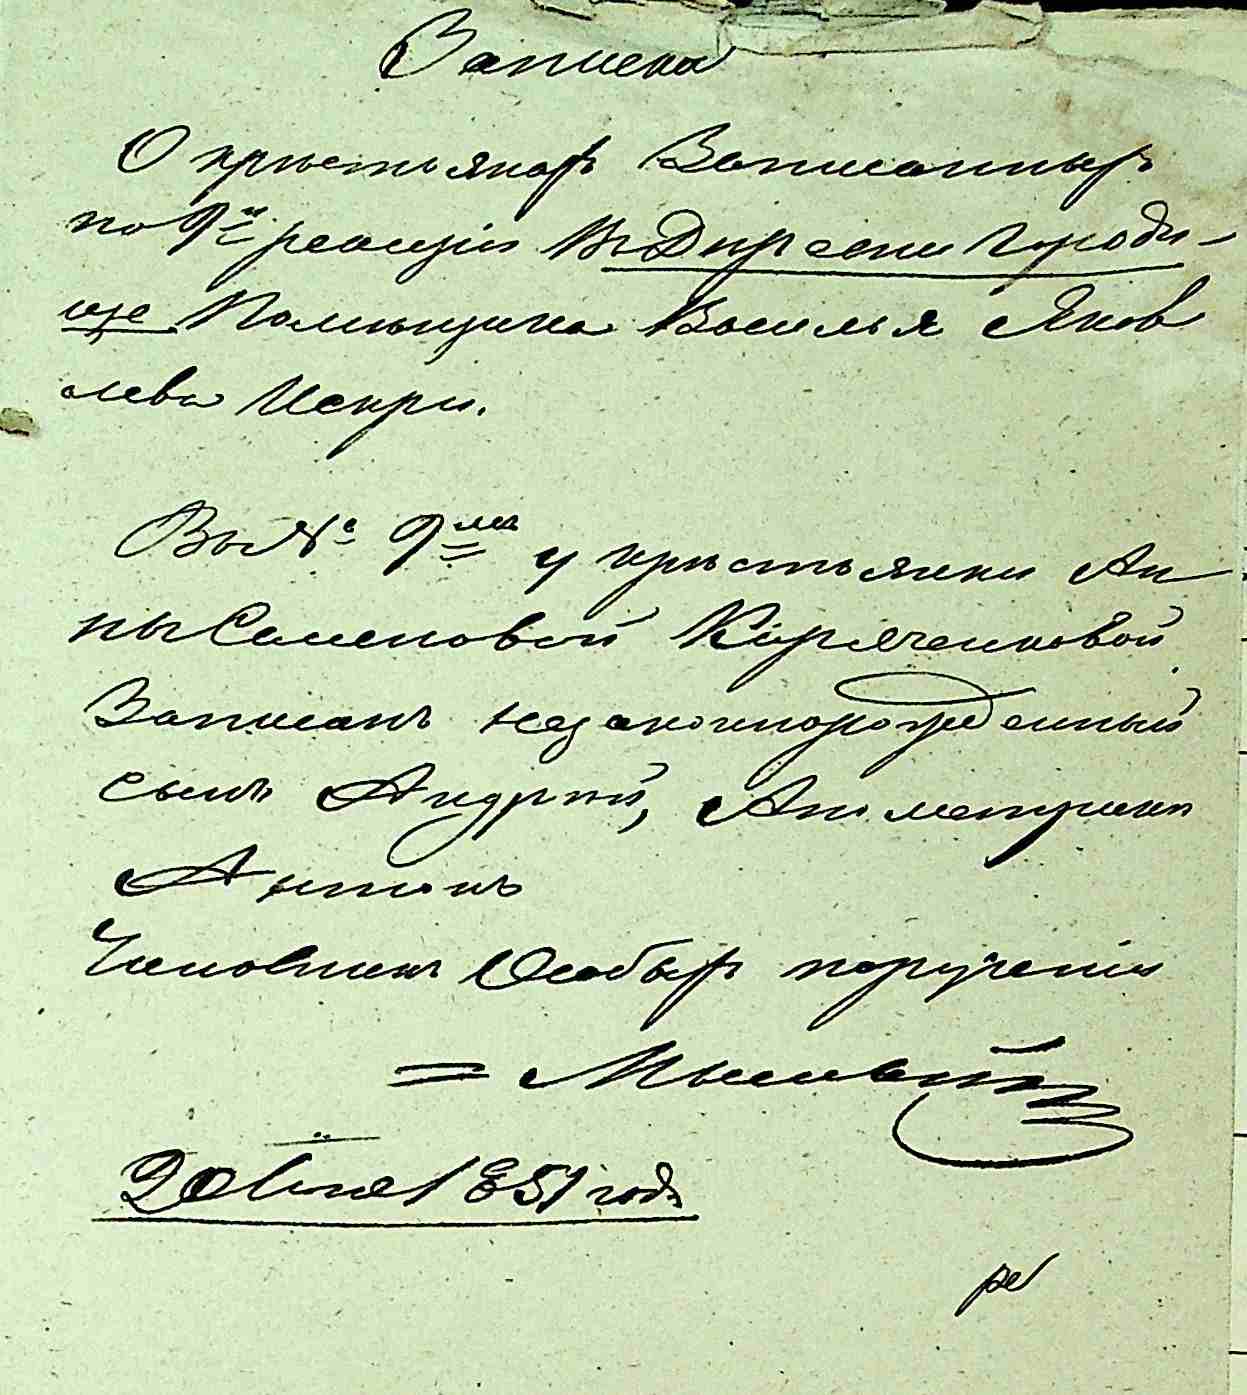 Записка
О крестьянахъ Записанныхъ
по 9й ревизіи Въ Деревни Городи-
ще Помещика Василья Яков
лева Искри.
Въ № 9мъ у крестьянки Ан
ны Семеновой Кирпченковой
Записанъ незаконнорожденный
сынъ Андрей, Апо метрики
Антонъ
Чиновникъ Особыхъ порученій
1851 года